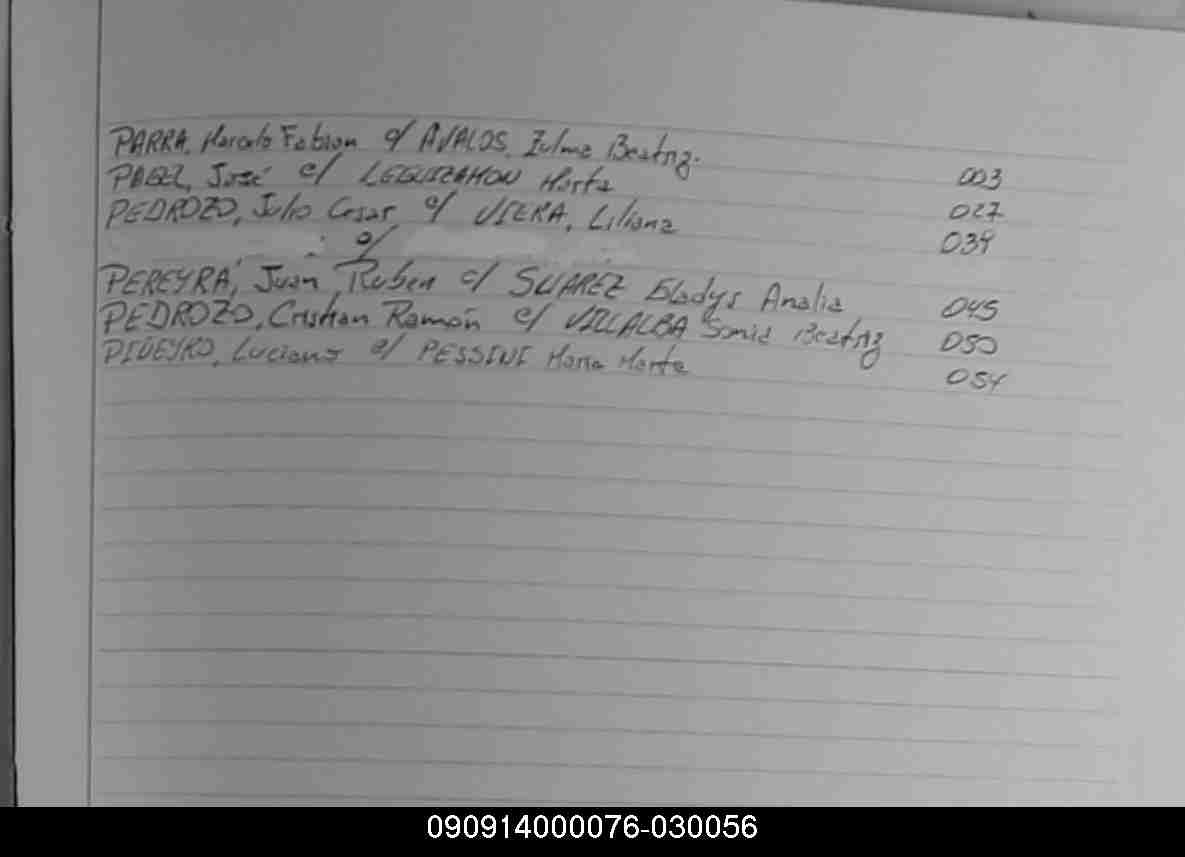 PARRA, Marcelo Fabian c/ AVALOS, Zulma Beatriz. 003
PAEZ, José c/ LEGUIZAMON Marta 027
PEDROZO, Julio Cesar c/ VIERA, Liliana 039
c/
PEREYRA, Juan Ruben c/ SUAREZ Gladys Analia 045
PEDROZO, Cristian Ramón c/ VILLALBA Sonia Beatriz 050
PIÑEYRO, Luciano c/ PESSINI Maria Marta 054
090914000076-030056